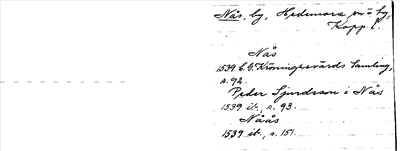 Nås, by, Hedemora sn o by,
Kopp. l.
Nås
1539 C.G. Kröningssvärds Samling,
s. 92.
Peder Sjurdson i Nås
1539 ib., s. 93.
Nåås
1539 ib., s. 151.